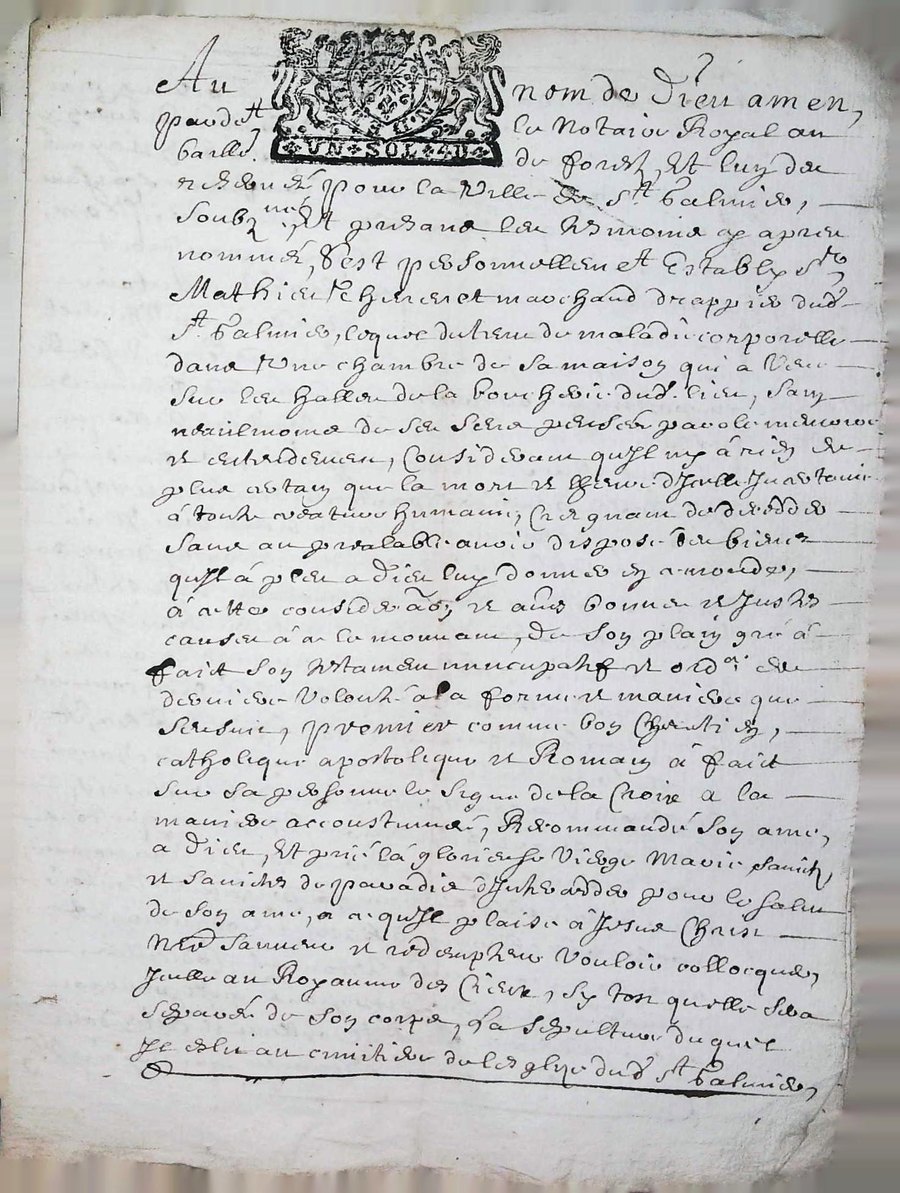 Au nom de Dieu amen,
UN·SOL·4D
pardevt le Notaire Royal au
baille de forest, Et luy de
reserué pour la Ville de St Galmier,
Soubzné, Et presans les tesmoins cy apres
nommés, S'est personnellemt Estably Sr
Mathieu marchand drappier dud
St Galmier, lequel detenu de maladie corporelle
dans Une chambre de sa maison qui a Veue
Sur les Halles de la boucherie dud. lieu, Sain
neantmoins de ses sens pensée parole memoire
et entendement, Considerant qu'Il ny à rien de
plus certain que la mort et lheure d'Icelle Incertaine
à toute creature humaine, Craignant de decedder
Sans au prealable auoir disposé des biens
qu'Il à pleu a Dieu luy donner en ce monde,
à cette consideraon et aues bonnes et Justes
causes à ce le mouuant, de son plain gré à
faict Son testament nuncupatif et ord. de
derniere Volonté a la forme et maniere que
Sensuit, premier comme bon Chrestien,
catholique apostolique et Romain à faict
Sur Sa personne le Signe de la Croix a la
maniere accoustumée, Recommandé Son ame,
a Dieu, Et prié la glorieuse Vierge Marie Saincts
et Sainctes de paradis d'Interceder pour le salut
de Son ame, a ce qu'Il plaise à Jesus Christ
Nre Sauueur et redempteur Vouloir collocquer,
Icelle au Royaume des Cieux, Sy tost quelle Sera
Separée de Son corps, La Sepulture duquel
Il eslit au cimitiere de lesglize dud St Galmier,